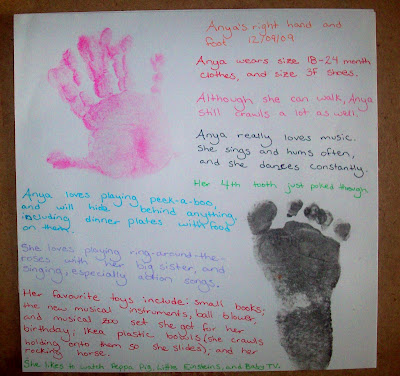 Anya's right hand and
foot 12/09/09
Anya wears size 18-24 month
clothes, and size 3F shoes.
Although she can walk, Anya
still crawls a lot as well.
Anya really loves music.
She sings and hums often,
and she dances constantly.
Her 4th tooth just poked through.
Anya loves playing peek-a-boo,
and will hide behind anything,
including dinner plates with food
on them.
She loves playing ring-around-the-
roses with her big sister, and
singing, especially action songs.
Her favourite toys include: small books;
the new musical instruments, ball blower,
and musical zoo set she got for her
birthday; Ikea plastic (she crawls
holding onto them so she slides), and her
rocking horse.
She likes to watch Peppa Pig, Little Einsteins, and Baby TV.